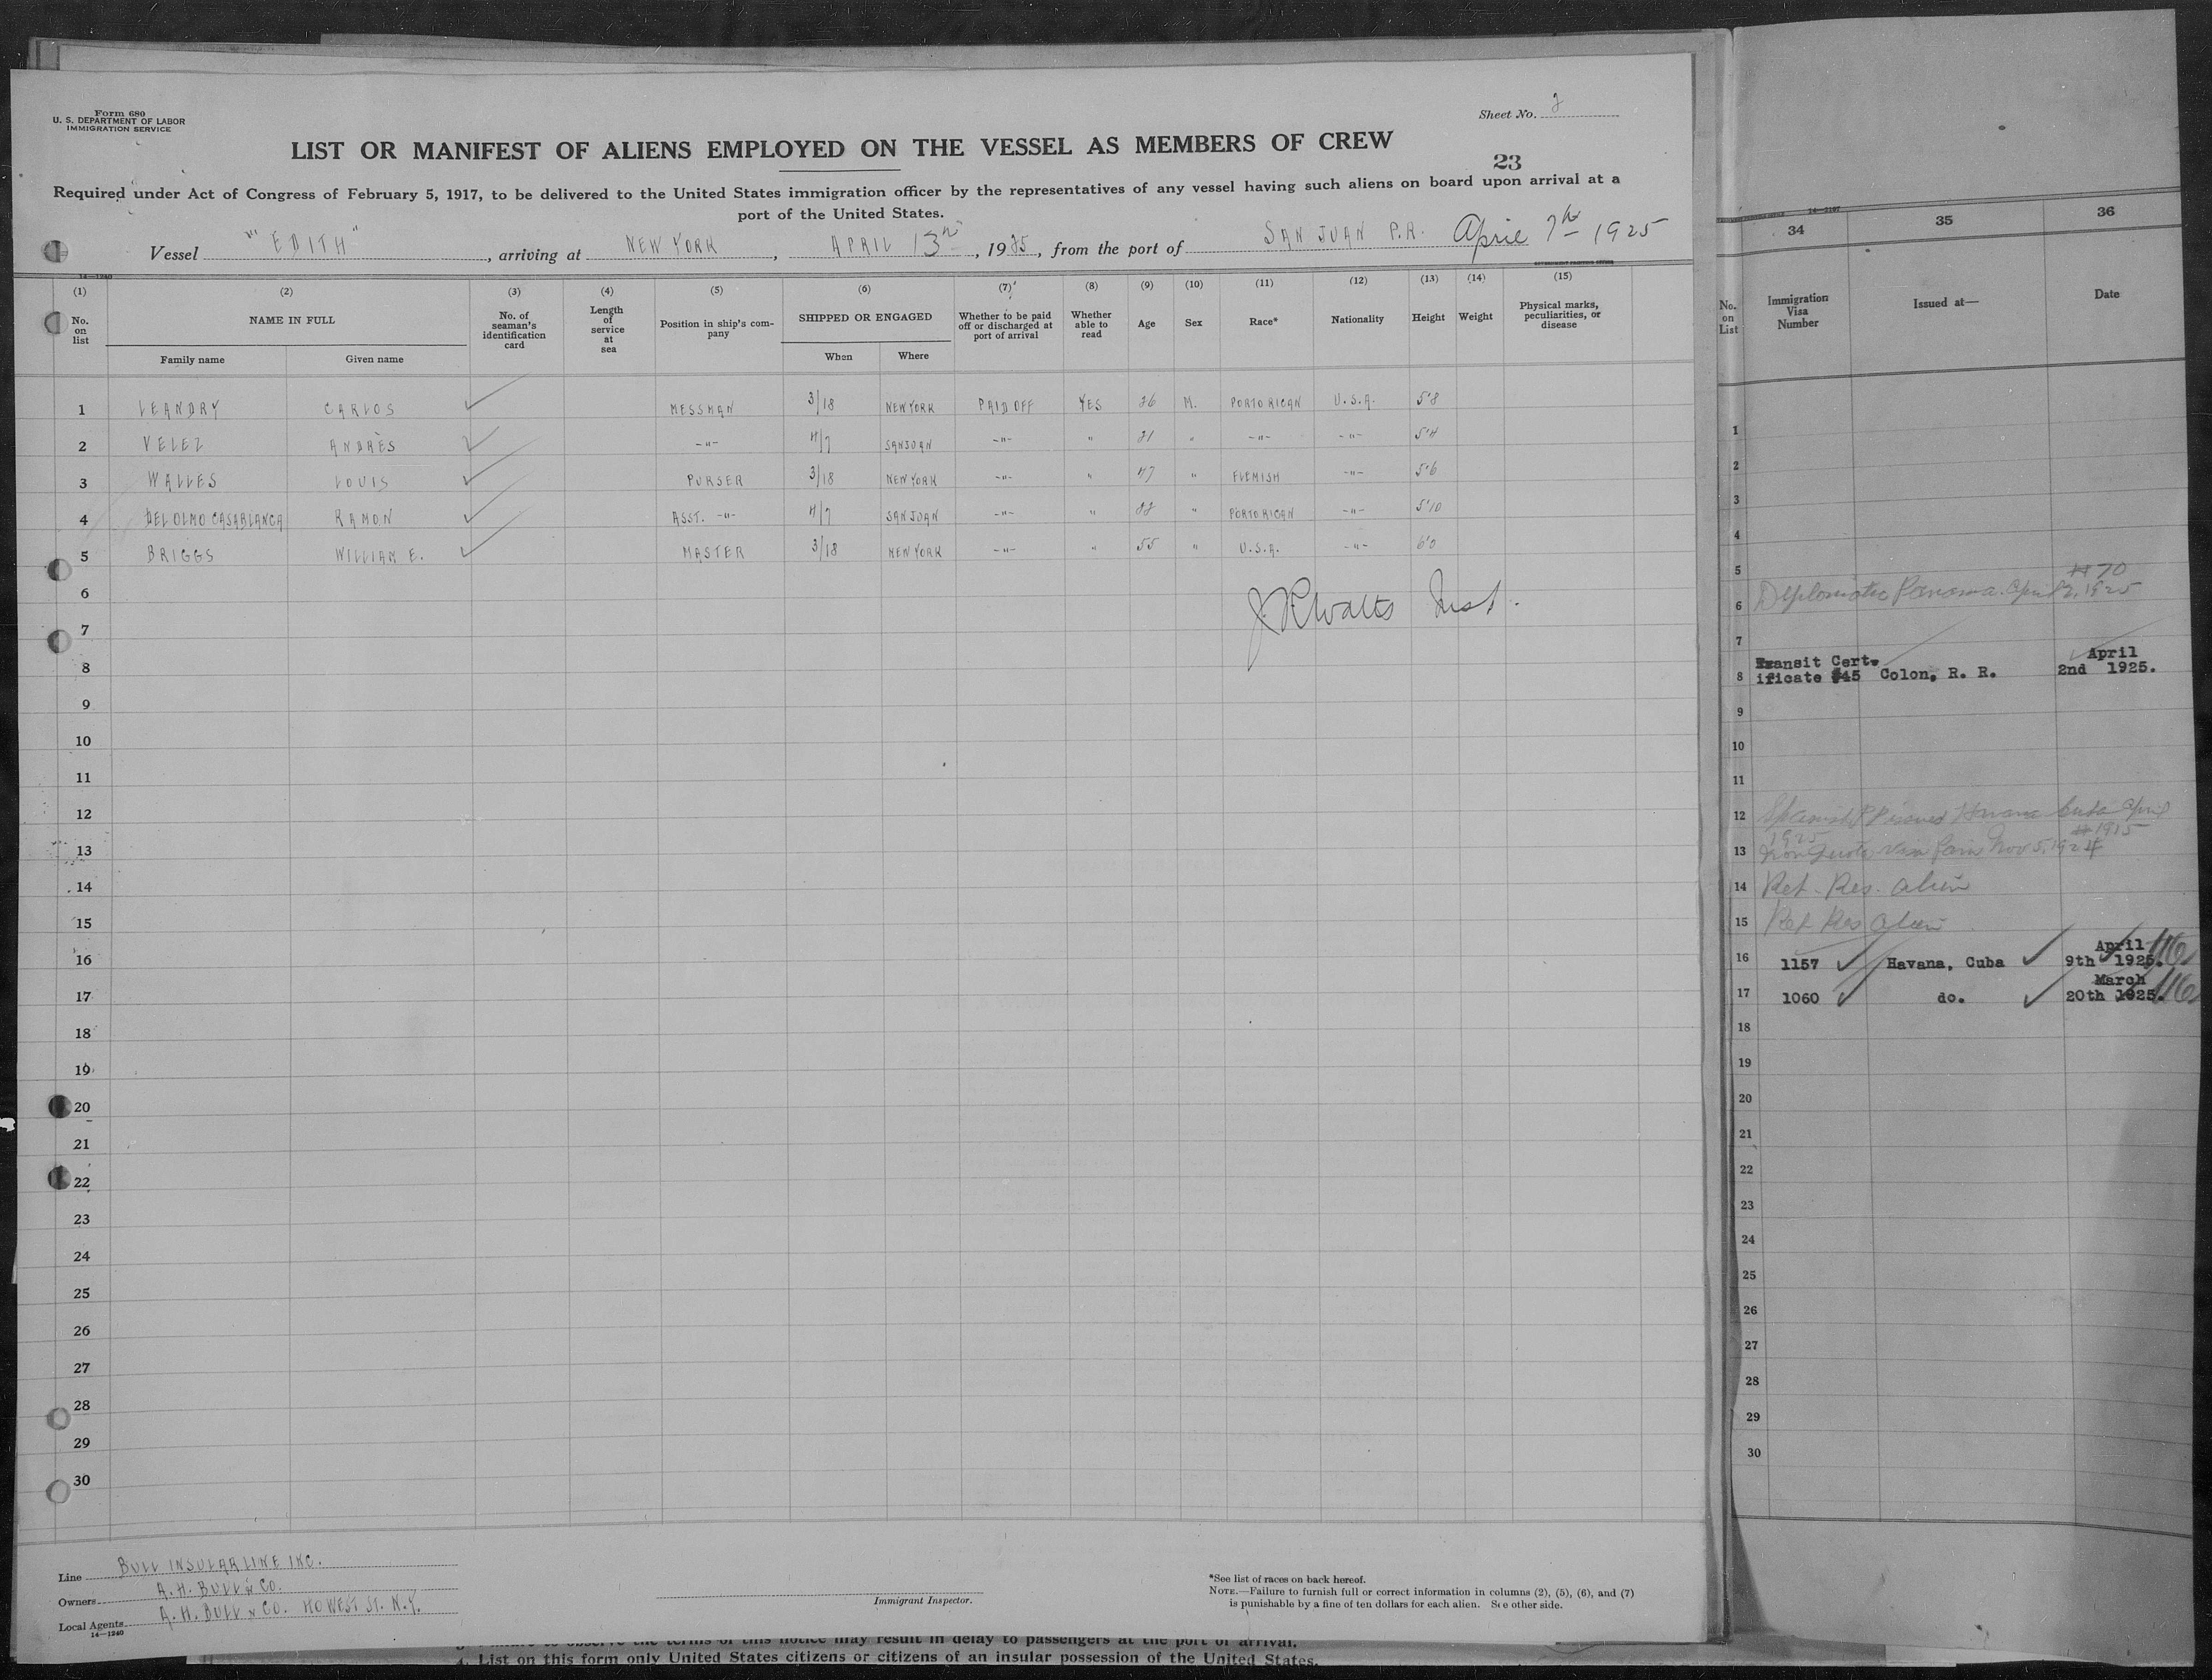 Form 680
U. S. DEPARTMENT OF LABOR
IMMIGRATION SERVICE
Sheet No. 2
LIST OR MANIFEST OF ALIENS EMPLOYED ON THE VESSEL AS MEMBERS OF CREW
23
Required under Act of Congress of February 5, 1917, to be delivered to the United States immigration officer by the representatives of any vessel having such aliens on board upon arrival at a
port of the United States.
Vessel "EDITH", arriving at NEW YORK, APRIL 13th, 1925, from the port of SAN JUAN P.R. April 7th 1925
14—1240
(1) (2) (3) (4) (5) (6) (7) (8) (9) (10) (11) (12) (13) (14) (15)
No. on list
NAME IN FULL
Family name Given name
No. of seaman's identification card
Length of service at sea
Position in ship's company
SHIPPED OR ENGAGED
When Where
Whether to be paid off or discharged at port of arrival
Whether able to read
Age
Sex
Race*
Nationality
Height
Weight
Physical marks, peculiarities, or disease
1 LEANDRY CARLOS MESSMAN 3/18 NEW YORK PAID OFF YES 26 M. PORTO RICAN U.S.A. 5'8
2 VELEZ ANDRÈS -"- 4/7 SAN JUAN -"- " 21 " -"- -"- 5'4
3 WALLES LOUIS PURSER 3/18 NEW YORK -"- " 47 " FLEMISH -"- 5'6
4 DEL OLMO CASABLANCA RAMON ASST. -"- 4/7 SAN JUAN -"- " " PORTO RICAN -"- 5'10
5 BRIGGS WILLIAM E. MASTER 3/18 NEW YORK -"- " 55 " U.S.A. -"- 6'0
6
7
8
9
10
11
12
13
14
15
16
17
18
19
20
21
22
23
24
25
26
27
28
29
30
Line BULL INSULAR LINE INC.
Owners A. H. BULL & CO.
Local Agents A. H. BULL & CO. 40 WEST ST. N.Y.
14—1240
Immigrant Inspector.
*See list of races on back hereof.
NOTE.—Failure to furnish full or correct information in columns (2), (5), (6), and (7)
is punishable by a fine of ten dollars for each alien. See other side.
may result in delay to passengers at the port of arrival.
List on this form only United States citizens or citizens of an insular possession of the United States.
34 35 36
No. on List
Immigration Visa Number
Issued at—
Date
1
2
3
4
5
#70
6 Diplomatic Panama. April 2, 1925
7
Transit Cert. April
8 ificate #45 Colon, R. R. 2nd 1925.
9
10
11
12 Spanish Havana Cuba April
1925 #1915
13 Non Quota Visa Nov 5, 1924
14 Ret. Res. alien
15 Ret Res alien
April
16 1157 Havana, Cuba 9th 1925.
March
17 1060 do. 20th 1925.
18
19
20
21
22
23
24
25
26
27
28
29
30